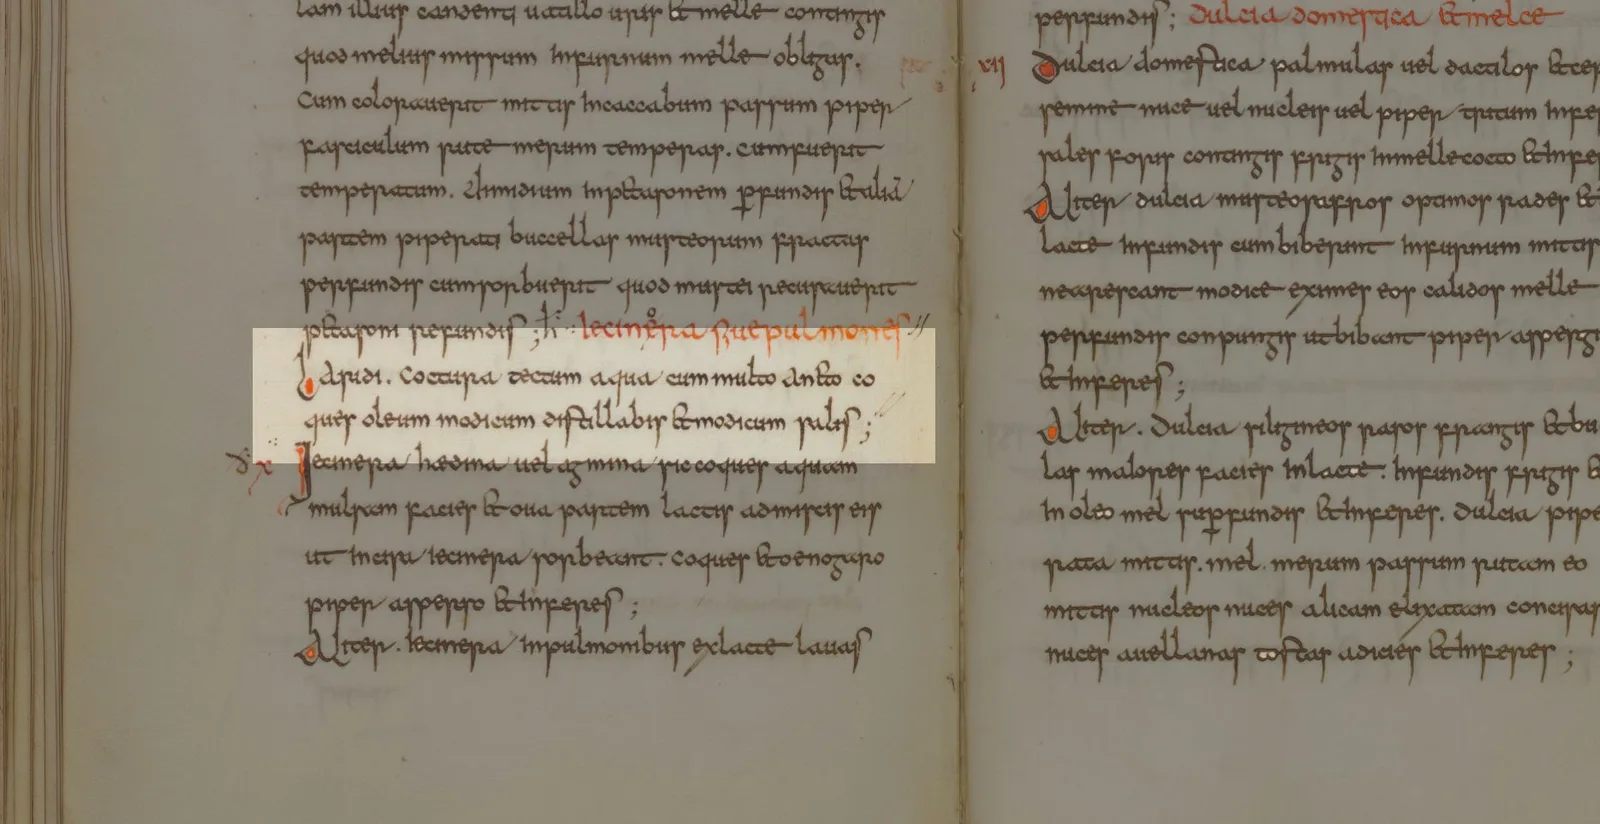 lam illius candenti vatillo urus et melle contingis
quod melius missum in furnum melle obligas.
Cum coloraverit mittis in caccabum passum piper
fasciculum rute merum temperas. cum fuerit
temperatum. dimidium in petasonem perfundis et aliā
partem piperati buccellas musteorum fractas
perfundis cum sorbuerit quod mustei recusaverit
petasoni refundis ; iecinera sive pulmones
Laridi. Coctura tectum aqua cum multo aneto co
ques oleum modicum distillabis et modicum salis ;
x Iecinera haedina vel agnina sic coques aquam
mulsam facies et ova partem lactis admiscis eis
ut incisa iecinera sorbeant. Coques et oenogaro
piper asperso et inferes ;
Aliter. Iecinera in pulmonibus ex lacte lavas
perfundis ; Dulcia domestica et melce
vii Dulcia domestica palmulas vel dactilos
semine nuce vel nucleis vel piper tritum
sales foris contingis frigis in melle cocto
Aliter dulcia musteos afros optimos rades
lacte infundis cum biberint in furnum mittis
ne arescant modice eximes eos calidos melle
perfundis conpungis ut bibant piper
et inferes ;
Aliter. Dulcia siligineos rasos frangis et bu
las maiores facies in lacte. infundis frigis
in oleo mel superfundis et inferes. Dulcia pipe
rata mittis. mel. merum passum rutam eo
mittis nucleos nuces alicam elixatam
nuces avellanas tostas adicies et inferes ;